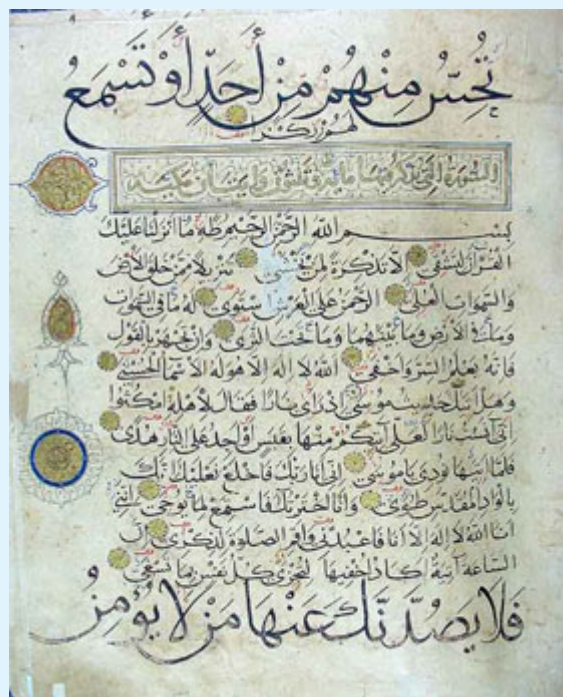 تُحِسُّ مِنْهُمْ مِنْ أَحَدٍ أَوْ تَسْمَعُ
لهم ركزا
السورة التي يذكر فيها مائة وثلثون مكية
بسم الله الرحمن الرحيم طه ما انزلنا عليك
القرآن لتشقى الا تذكرة لمن يخشى تنزيلا ممن خلق الارض
والسموات العلى الرحمن على العرش استوى له ما في السموات
وما في الارض وما بينهما وما تحت الثرى وان تجهر بالقول
فانه يعلم السر واخفى الله لا اله الا هو له الاسماء الحسنى
وهل اتيك حديث موسى اذ رأى نارا فقال لاهله امكثوا
اني آنست نارا لعلي آتيكم منها بقبس او اجد على النار هدى
فلما اتيها نودي يا موسى اني انا ربك فاخلع نعليك انك
بالواد المقدس طوى وانا اخترتك فاستمع لما يوحى انني
انا الله لا اله الا انا فاعبدني واقم الصلاة لذكري ان
الساعة آتية اكاد اخفيها لتجزى كل نفس بما تسعى
فَلَا يَصُدَّنَّكَ عَنْهَا مَنْ لَا يُؤْمِنُ